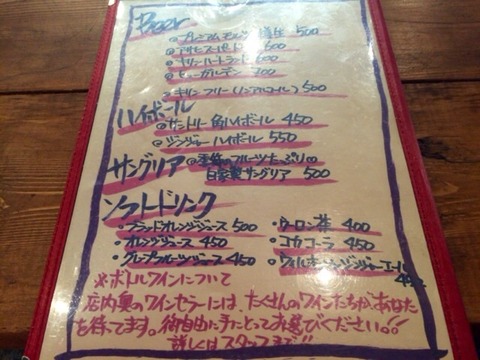 Beer
プレミアムモルツ 樽生 500
アサヒスーパードライ 600
キリンハートランド 600
ヒューガルデン 700
キリンフリー(ノンアルコール) 500
ハイボール
サントリー 角ハイボール 450
ジンジャーハイボール 550
サングリア 季節のフルーツたっぷり∞
自家製サングリア 500
ソフトドリンク
・ブラッドオレンジジュース 500 ・ウーロン茶 400
・オレンジジュース 450 ・コカコーラ 450
・グレープフルーツジュース 450 ・ウィルキンソンジンジャーエール
450
※ボトルワインについて
店内奥のワインセラーには、たくさんのワインたちが、あなた
を待てます。御自由に手にとってお選びください。
詳しくはスタッフまで!!